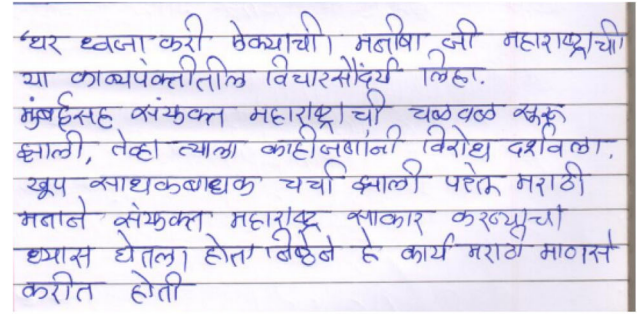 'धर ध्वजा करी ऐक्याची। मनीषा जी महाराष्ट्राची
या काव्यपंक्तीतील विचारसौंदर्य लिहा.
मुंबईसह संयुक्त महाराष्ट्राची चळवळ सुरू
झाली, तेव्हा त्याला काहीजणांनी विरोध दर्शवला.
खूप साधकबाधक चर्चा झाली परंतु मराठी
मनाने संयुक्त महाराष्ट्र साकार करण्याचा
ध्यास घेतला होता निष्ठेने हे कार्य मराठी माणसे
करीत होती